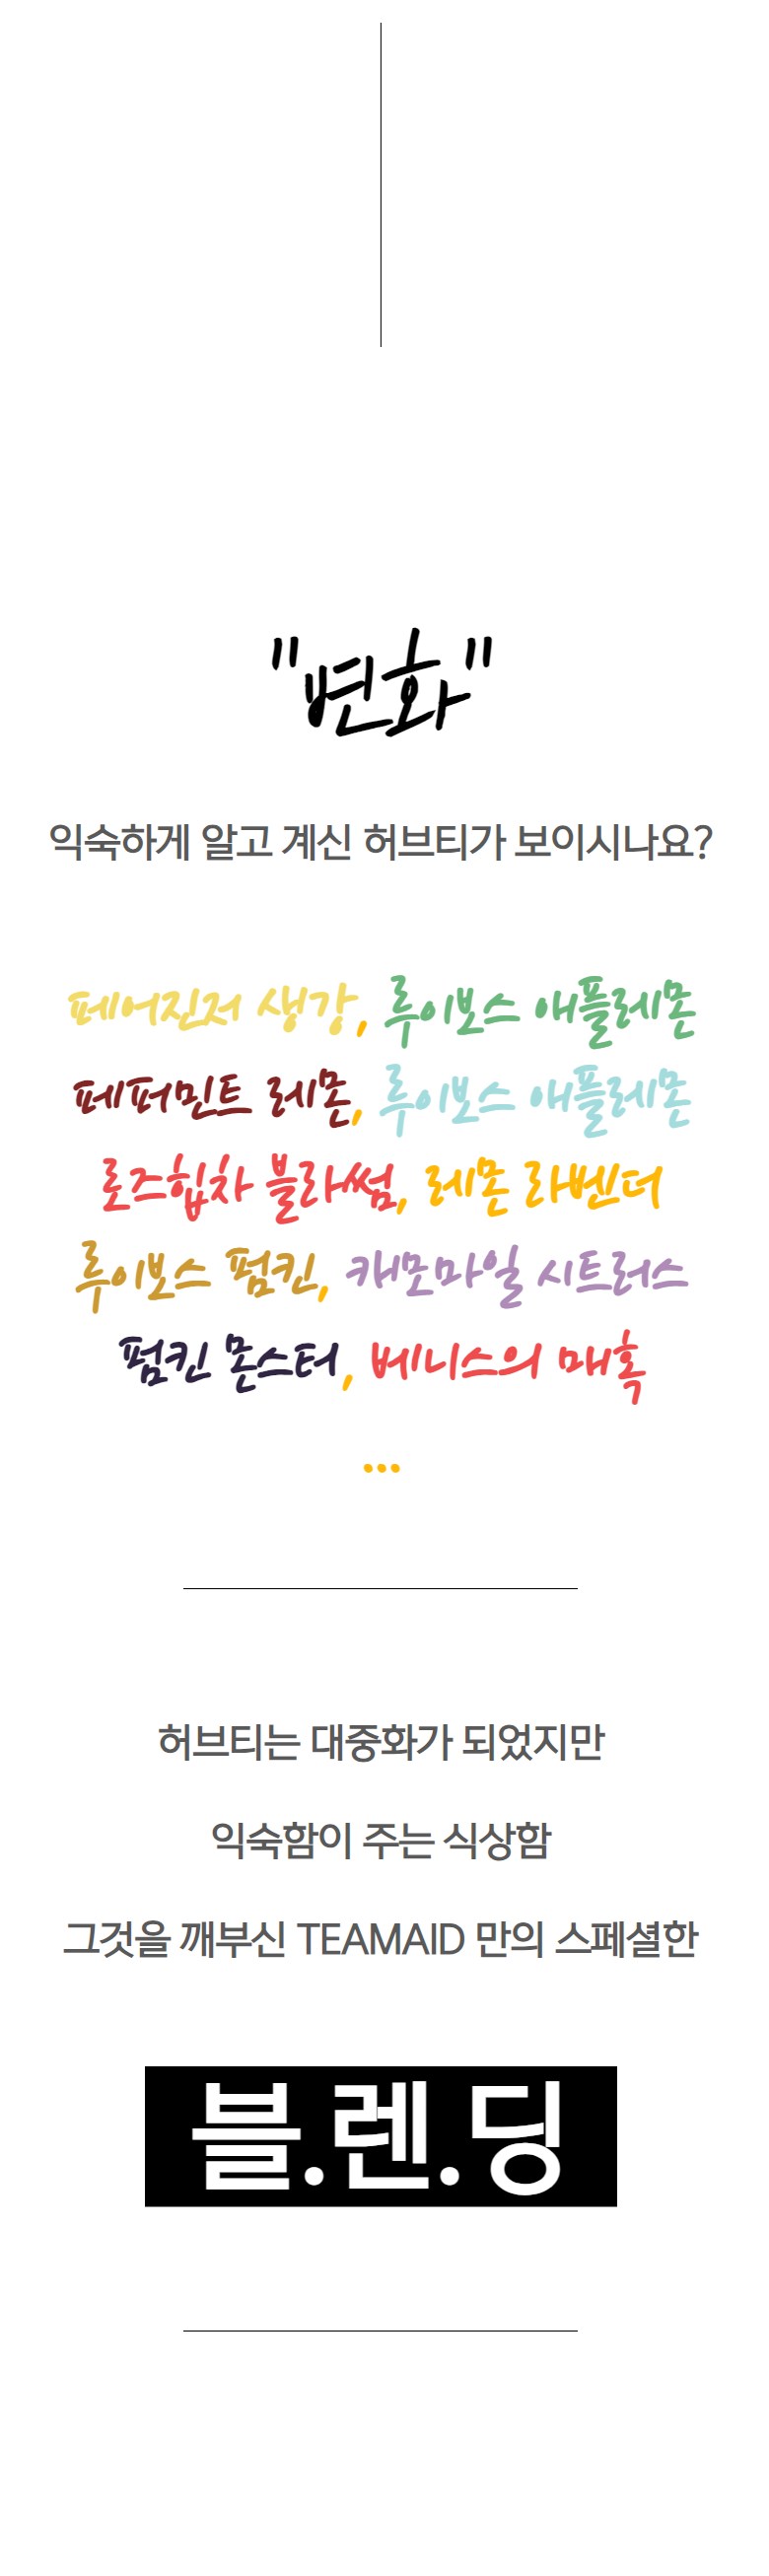 "변화"
익숙하게 알고 계신 허브티가 보이시나요?
페어진저 생강, 루이보스 애플레몬
페퍼민트 레몬, 루이보스 애플레몬
로즈힙차 블라썸, 레몬 라벤더
루이보스 펌킨, 캐모마일 시트러스
펌킨 몬스터, 베니스의 매혹
...
허브티는 대중화가 되었지만
익숙함이 주는 식상함
그것을 깨부신 TEAMAID 만의 스페셜한
블.렌.딩